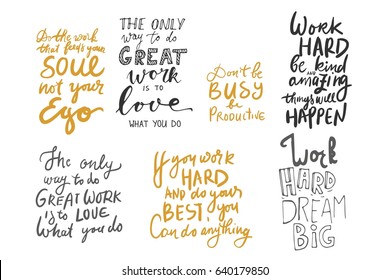 Do the work
that feeds your
SOUL
not your
Ego
THE ONLY
way to do
GREAT
work
IS TO
love
WHAT YOU DO
Don't be
BUSY
be
PRODUCTIVE
Work
HARD
be kind
AND
amazing
things will
HAPPEN
The only
way to do
GREAT WORK
is to LOVE
what you do
If you work
HARD
AND do your
BEST, you
Can do anything
Work
HARD
DREAM
BIG
shutterstock
IMAGE ID: 640179850
www.shutterstock.com